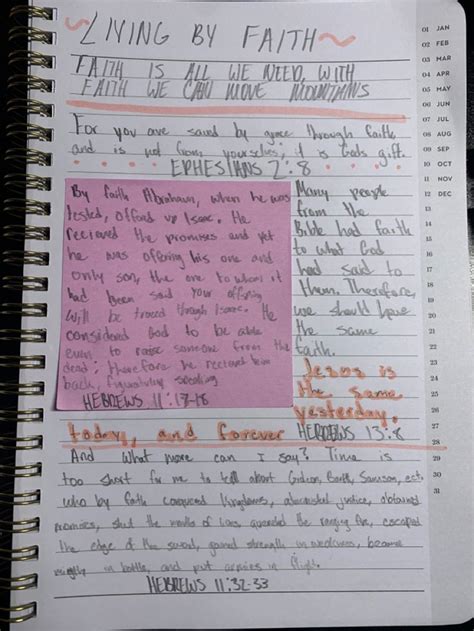 ~LIVING BY FAITH~
FAITH IS ALL WE NEED, WITH
FAITH WE CAN MOVE MOUNTAINS
For you are saved by grace through faith
and is not from yourselves, it is Gods gift.
EPHESIANS 2:8
By faith Abraham, when he was
tested, offerd up Isaac. He
recieved the promises and yet
he was offering his one and
only son, the one to whom it
had been said Your offspring
will be traced through Isaac. He
considered God to be able
even to raise someone from the
dead; therefore he recieved him
back, figuratively speaking
HEBREWS 11:17-18
Many people
from the
Bible had faith
to what God
had said to
them. Therefore,
we should have
the same
faith.
Jesus is
the same
yesterday,
today, and forever HEBREWS 13:8
And what more can I say? Time is
too short for me to tell about Gideon, Barak, Samson, ect.
who by faith conquered kingdoms, administered justice, obtained
promises, shut the mouths of lions, quenched the raging fire, escaped
the edge of the sword, gained strength in weakness, became
mighty in battle, and put armies in flight.
HEBREWS 11:32-33
01 JAN
02 FEB
03 MAR
04 APR
05 MAY
06 JUN
07 JUL
08 AUG
09 SEP
10 OCT
11 NOV
12 DEC
13
14
15
16
17
18
19
20
21
22
23
24
25
26
27
28
29
30
31